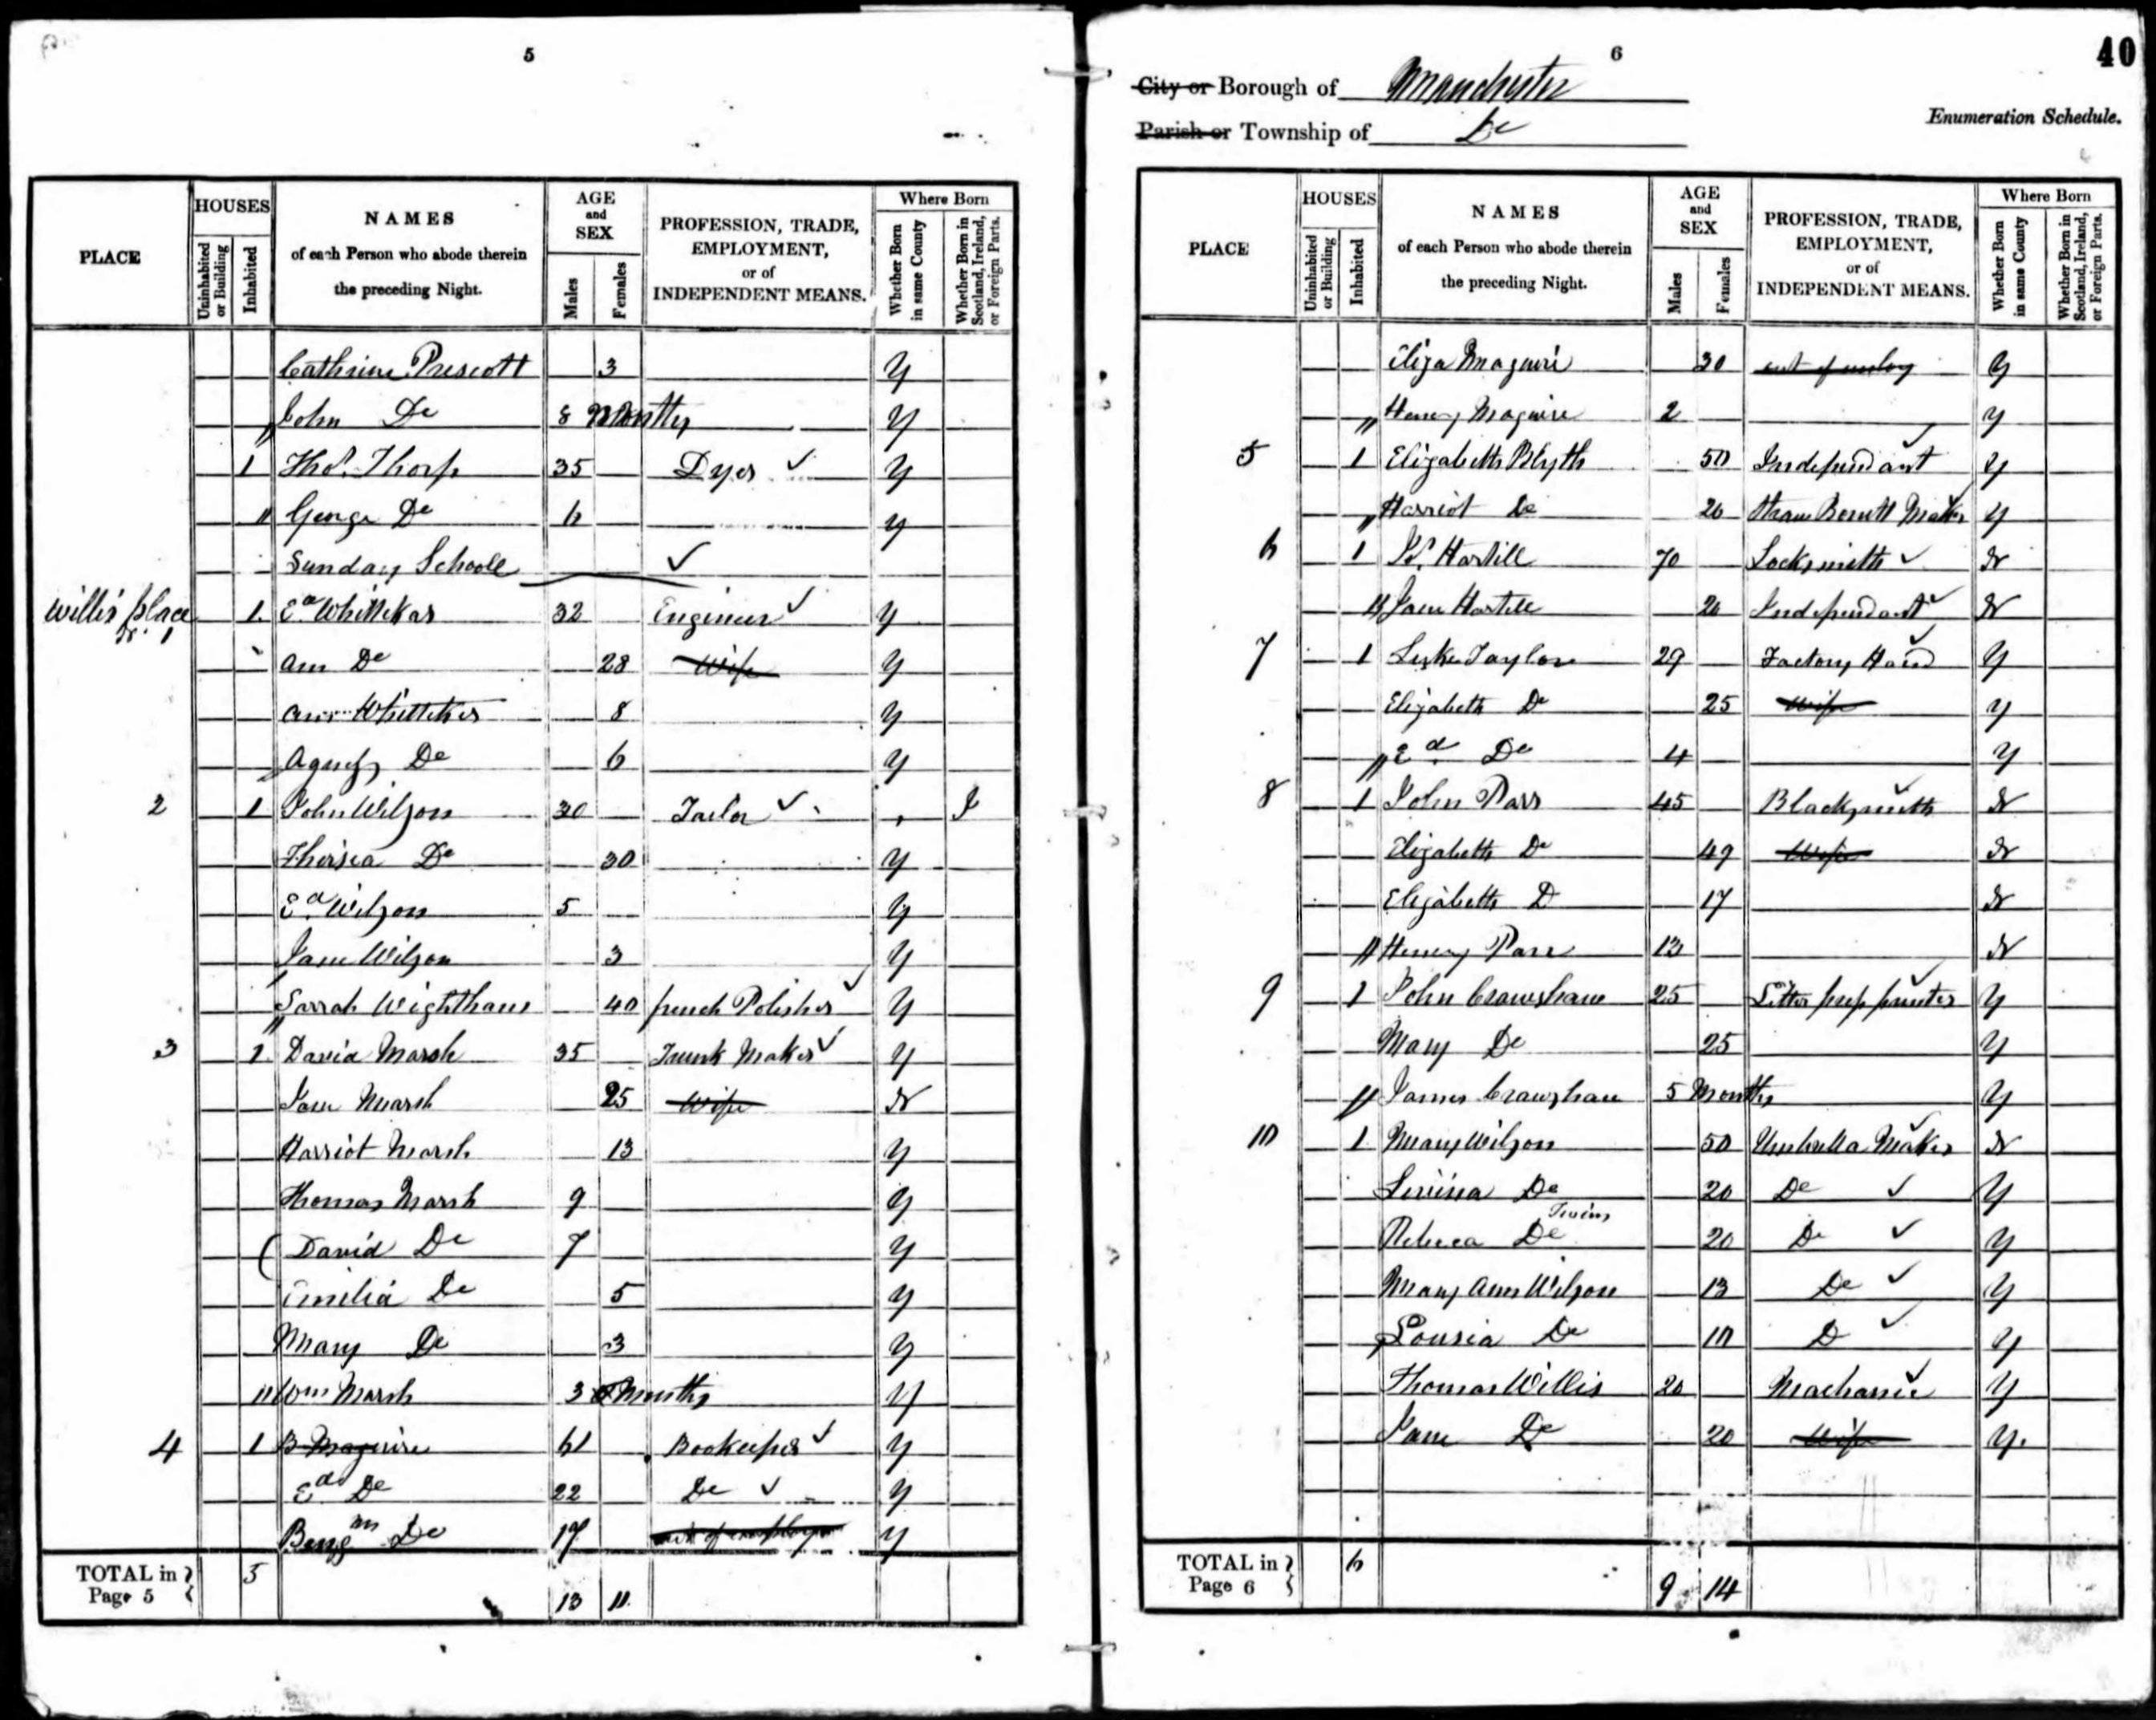 5
PLACE
HOUSES
Uninhabited or Building
Inhabited
NAMES
of each Person who abode therein
the preceding Night.
AGE
and
SEX
Males
Females
PROFESSION, TRADE,
EMPLOYMENT,
or of
INDEPENDENT MEANS.
Where Born
Whether Born in same County
Whether Born in Scotland, Ireland, or Foreign Parts.
Cathrine Prescott 3 Y
John Do 8 Months Y
1 Thos. Thorp 35 Dyer Y
George Do 6 Y
Sunday Schooll
Willis place
No. 1 1 Ed Whittekar 32 Engineer Y
Ann Do 28 Wife Y
Ann Whitteker 8 Y
Agness Do 6 Y
2 1 John Wilson 30 Tailor I
Thersia Do 30 Y
Ed Wilson 5 Y
Jane Wilson 3 Y
Sarrah Wightham 40 french Polisher Y
3 1 David Marsh 35 Trunk Maker Y
Jane Marsh 25 Wife N
Harriot Marsh 13 Y
Thomas Marsh 9 Y
David Do 7 Y
Emilia Do 5 Y
Mary Do 3 Y
Wm Marsh 3 Months Y
4 1 B Maguire 61 Bookeeper Y
Ed Do 22 Do Y
Benjmn Do 17 out of employ Y
TOTAL in
Page 5 5 13 11
6
40
City or Borough of Manchester
Parish or Township of Do
Enumeration Schedule.
PLACE
HOUSES
Uninhabited or Building
Inhabited
NAMES
of each Person who abode therein
the preceding Night.
AGE
and
SEX
Males
Females
PROFESSION, TRADE,
EMPLOYMENT,
or of
INDEPENDENT MEANS.
Where Born
Whether Born in same County
Whether Born in Scotland, Ireland, or Foreign Parts.
Eliza Maguire 30 out of employ Y
Henry Maguire 2 Y
5 1 Elizabeth Blyth 50 Independant Y
Harriot Do 20 Straw Bonnett Maker Y
6 1 Hartill 70 Locksmith N
Jane Hartill 20 Independant N
7 1 Luke Taylor 29 Factory Hand Y
Elizabeth Do 25 Wife Y
Ed Do 4 Y
8 1 John Parr 45 Blacksmith N
Elizabeth Do 49 Wife N
Elizabeth D 17 N
Henry Parr 13 N
9 1 John Crawshaw 25 Letter press printer Y
Mary Do 25 Y
James Crawshaw 5 Months Y
10 1 Mary Wilson 50 Umbrella Maker N
Levina Do 20 Do Y
Twins
Rebecca Do 20 Do Y
Mary Ann Wilson 13 Do Y
Lousia Do 10 D Y
Thomas Willis 20 Machanic Y
Jane Do 20 Wife Y.
TOTAL in
Page 6 6 9 14